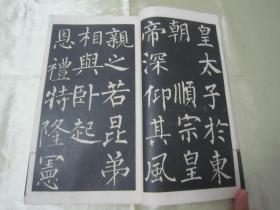 皇太子於東
朝順宗皇
帝深仰其風
親之若昆弟
相與卧起
恩禮特隆憲